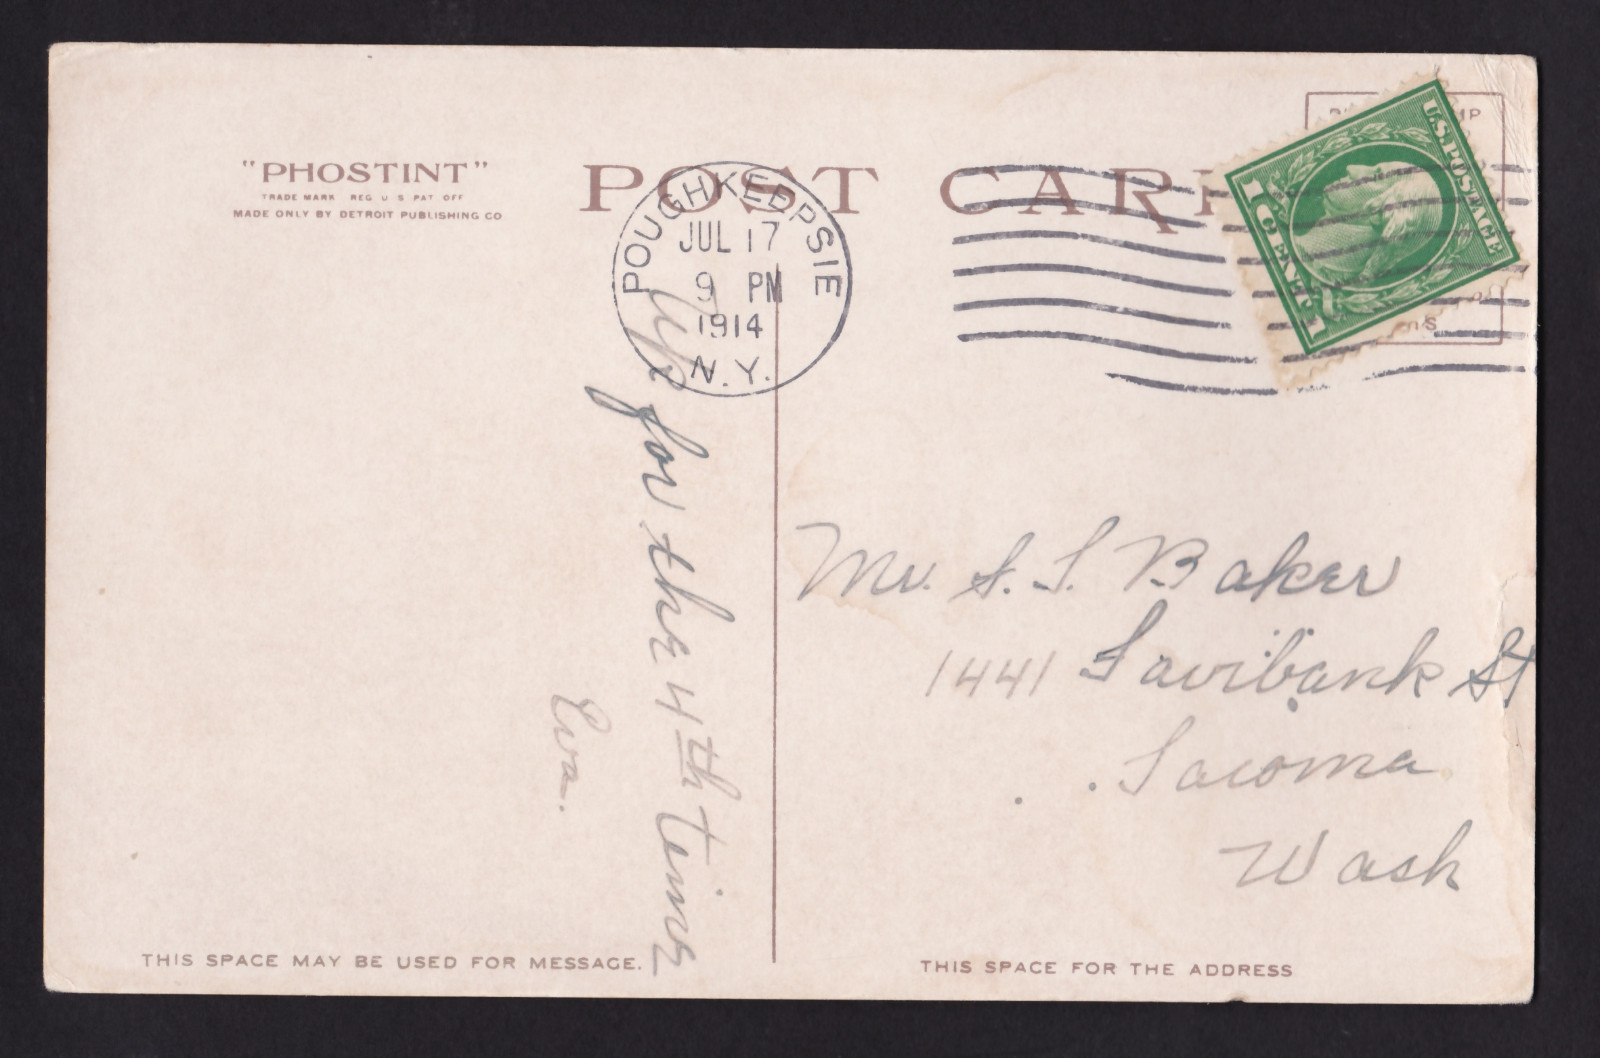 "PHOSTINT"
TRADE MARK REG U S PAT OFF
MADE ONLY BY DETROIT PUBLISHING CO
POST CAR
U.S. POSTAGE
1 CENT 1
POUGHKEEPSIE
JUL 17
9 PM
1914
N.Y.
Up for the 4th time
Eva.
Mr. S. S. Baker
1441 Fairbank St
Tacoma
Wash
THIS SPACE MAY BE USED FOR MESSAGE.
THIS SPACE FOR THE ADDRESS